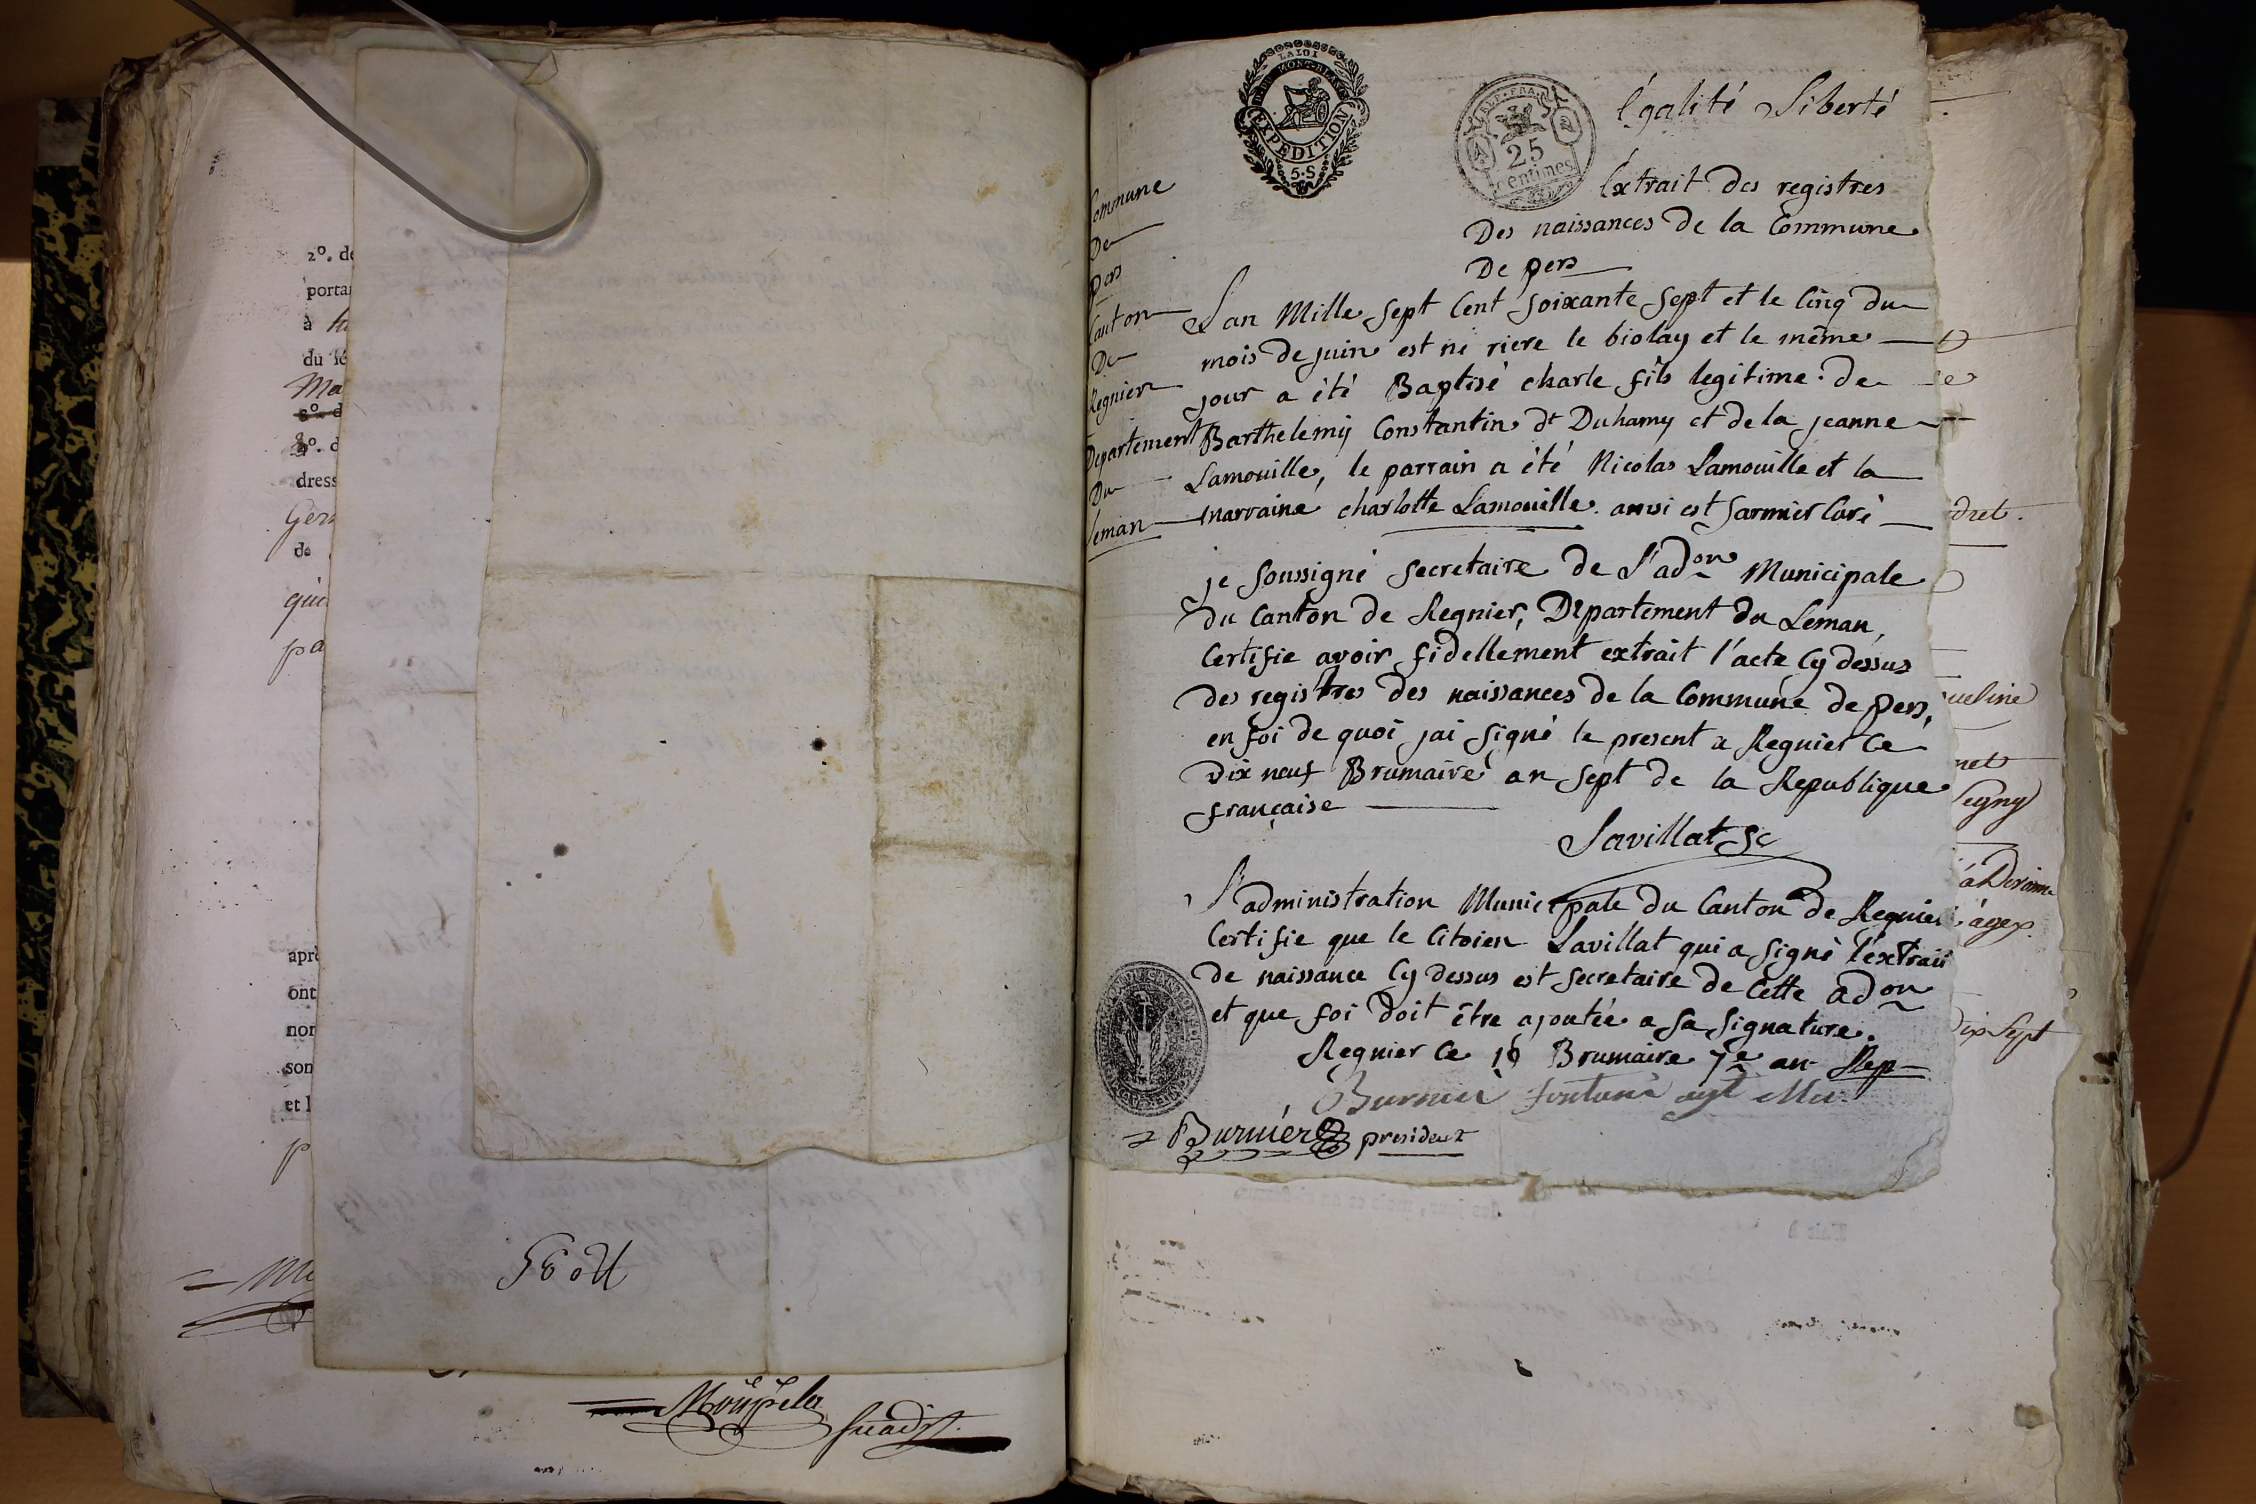 2º. de
porta
à
du
Ma
dress
Ger
de
qui
pa
apré
ont
non
son
et l
p
LA LOI
EXPEDITION
5.S
REP. FRA.
25
centimes
égalité Liberté
Extrait des registres
Des naissances de la Commune
De pers
Commune
De
pers
Canton
De
Regnier
Departement
Du
Leman
Lan Mille Sept Cent Soixante Sept et le Cinq du
mois de juin est né riere le biolay et le même
jour a été Baptisé charle fils legitime de
Barthelemÿ Constantin dt Duhamy et de la jeanne
Lamouille, le parrain a été Nicolas Lamouille et la
marraine charlotte Lamouille. ainsi est Sarmier Curé
je Soussigné Secretaire de L'adon Municipale
du Canton de Regnier, Departement du Leman,
Certifie avoir fidellement extrait l'acte Cy dessus
des registres des naissances de la Commune de pers,
en foi de quoi jai Signé le present a Regnier Ce
Dix neuf Brumaire an Sept de la Republique
française
Lavillat Sc
L'administration Municipale du Canton de Regnier
Certifie que le Citoien Lavillat qui a Signé l'extrait
de naissance Cy dessus est Secretaire de Cette adon
et que foi doit être ajoutée a Sa Signature.
Regnier Ce 19 Brumaire 7e an Rep
Burnier fontaine agt Mu.
Burnier president
dret.
ueline
net
Segny
à Divonne
à gex
dix Sept